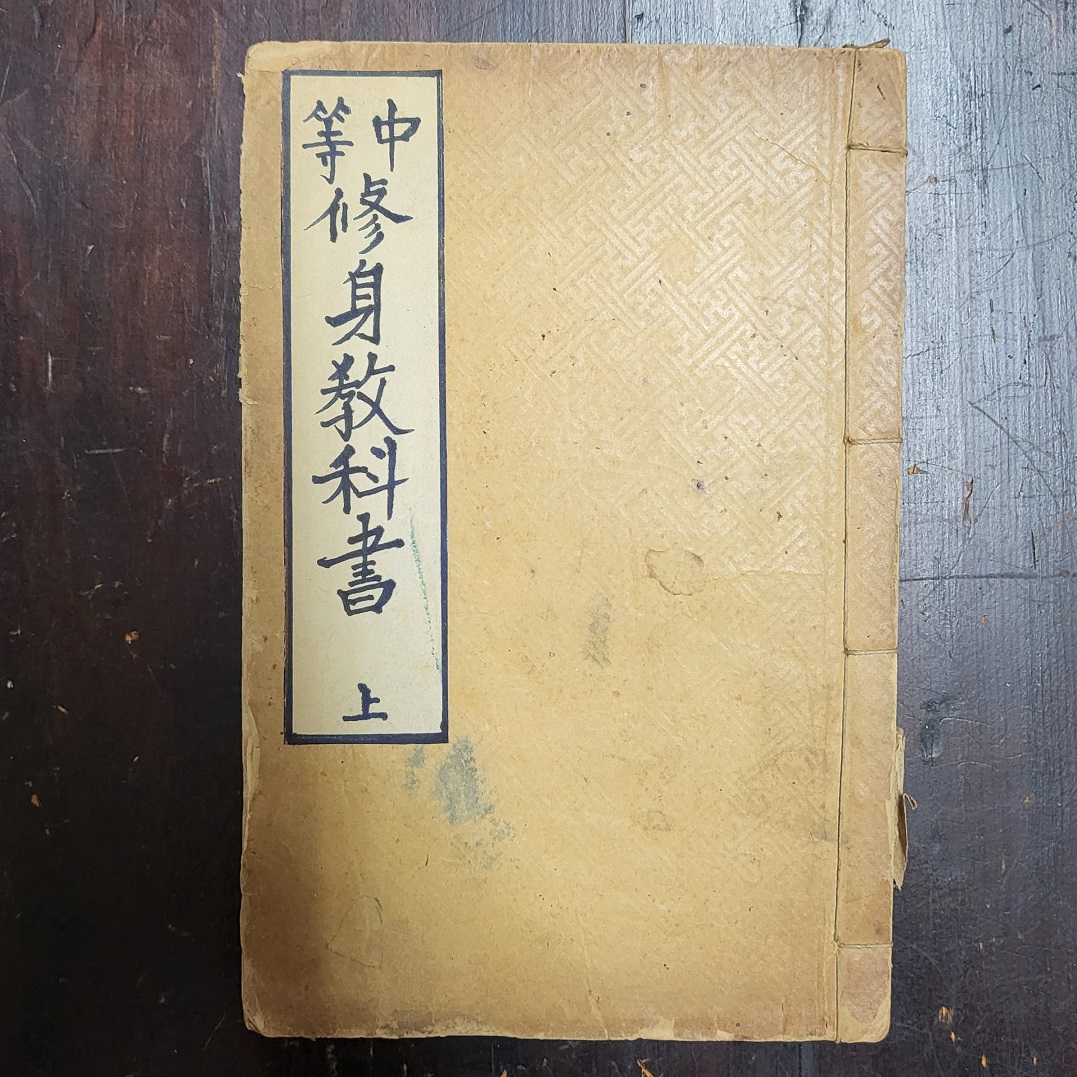 中等修身敎科書 上